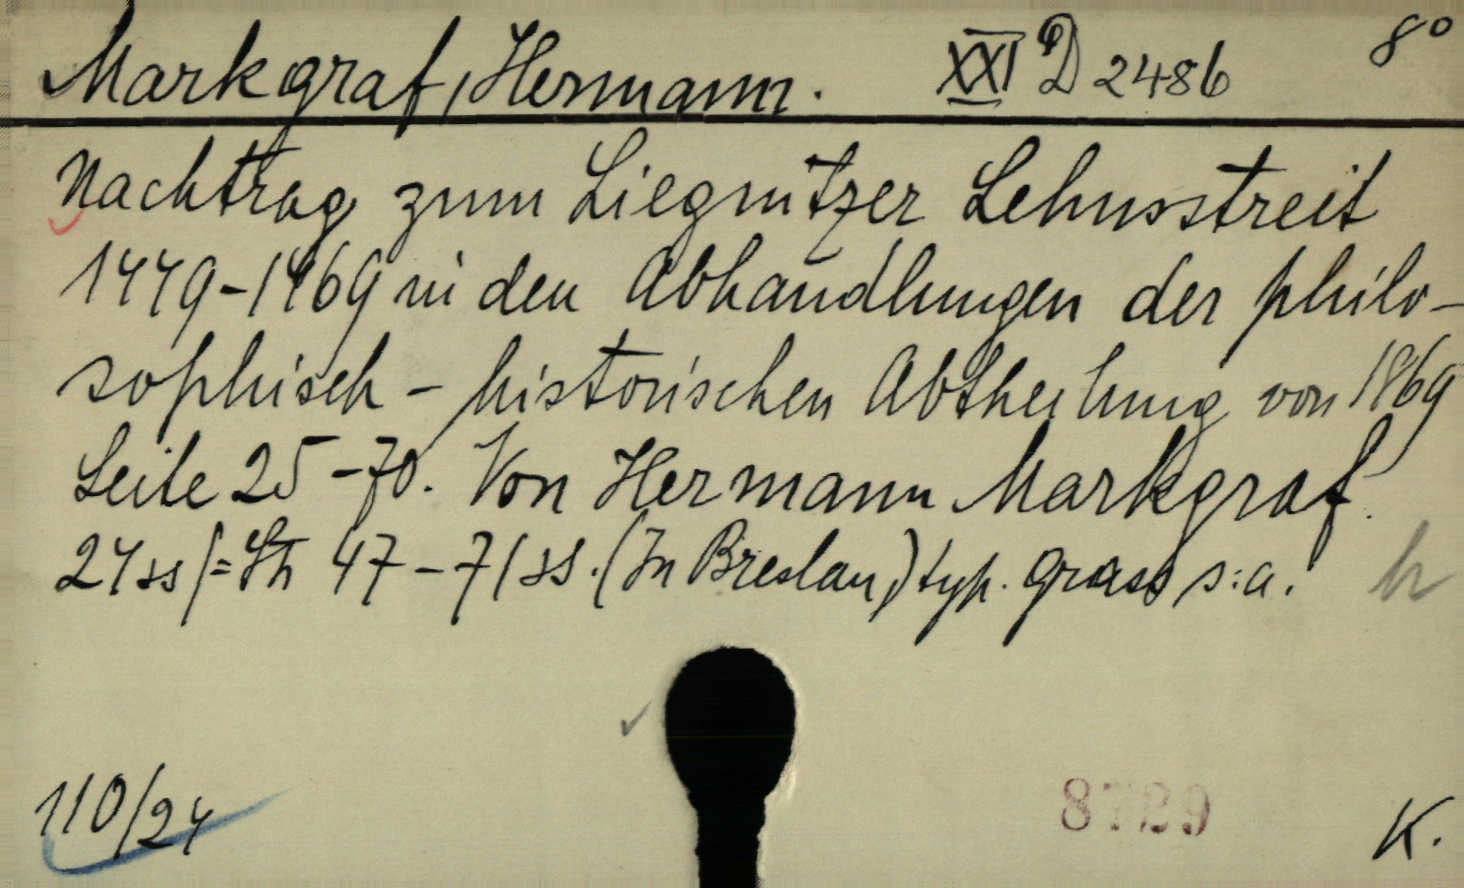 Markgraf, Hermann. XXI D 2486 8°
Nachtrag zum Liegnitzer Lehnsstreit
1449-1469 in den Abhandlungen der philo-
sophisch-historischen Abtheilung von 1869
Seite 25-70. Von Hermann Markgraf.
24 ss 47-71 ss. (In Breslau,) typ. Grass s: a. h
110/24 8729 K.